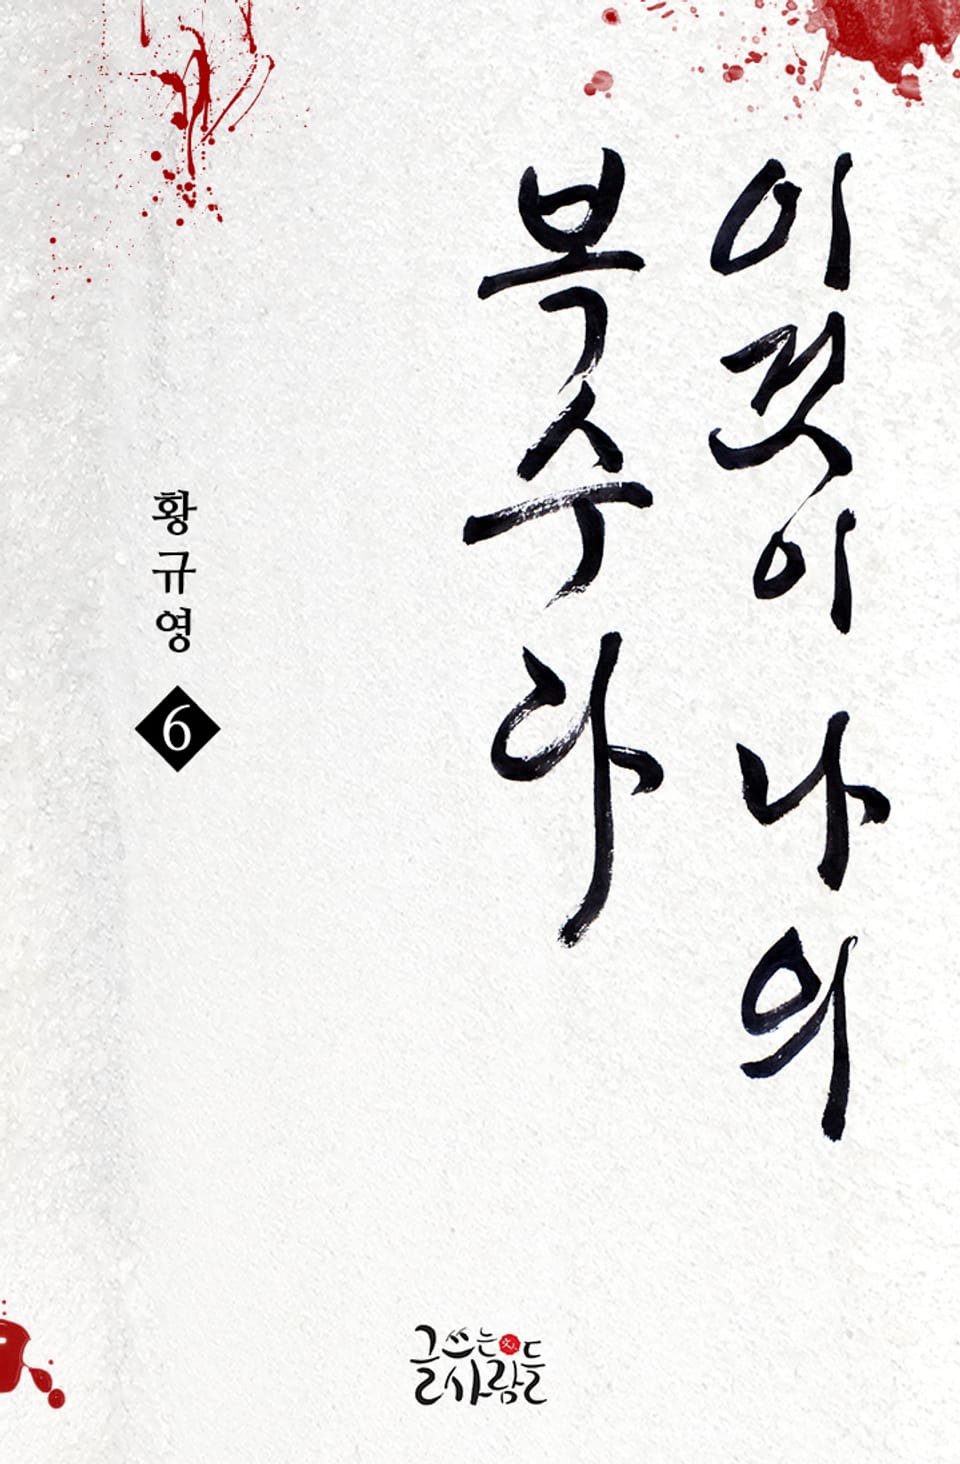 이것이 나의
복수다
황규영
6
글쓰는
사람들